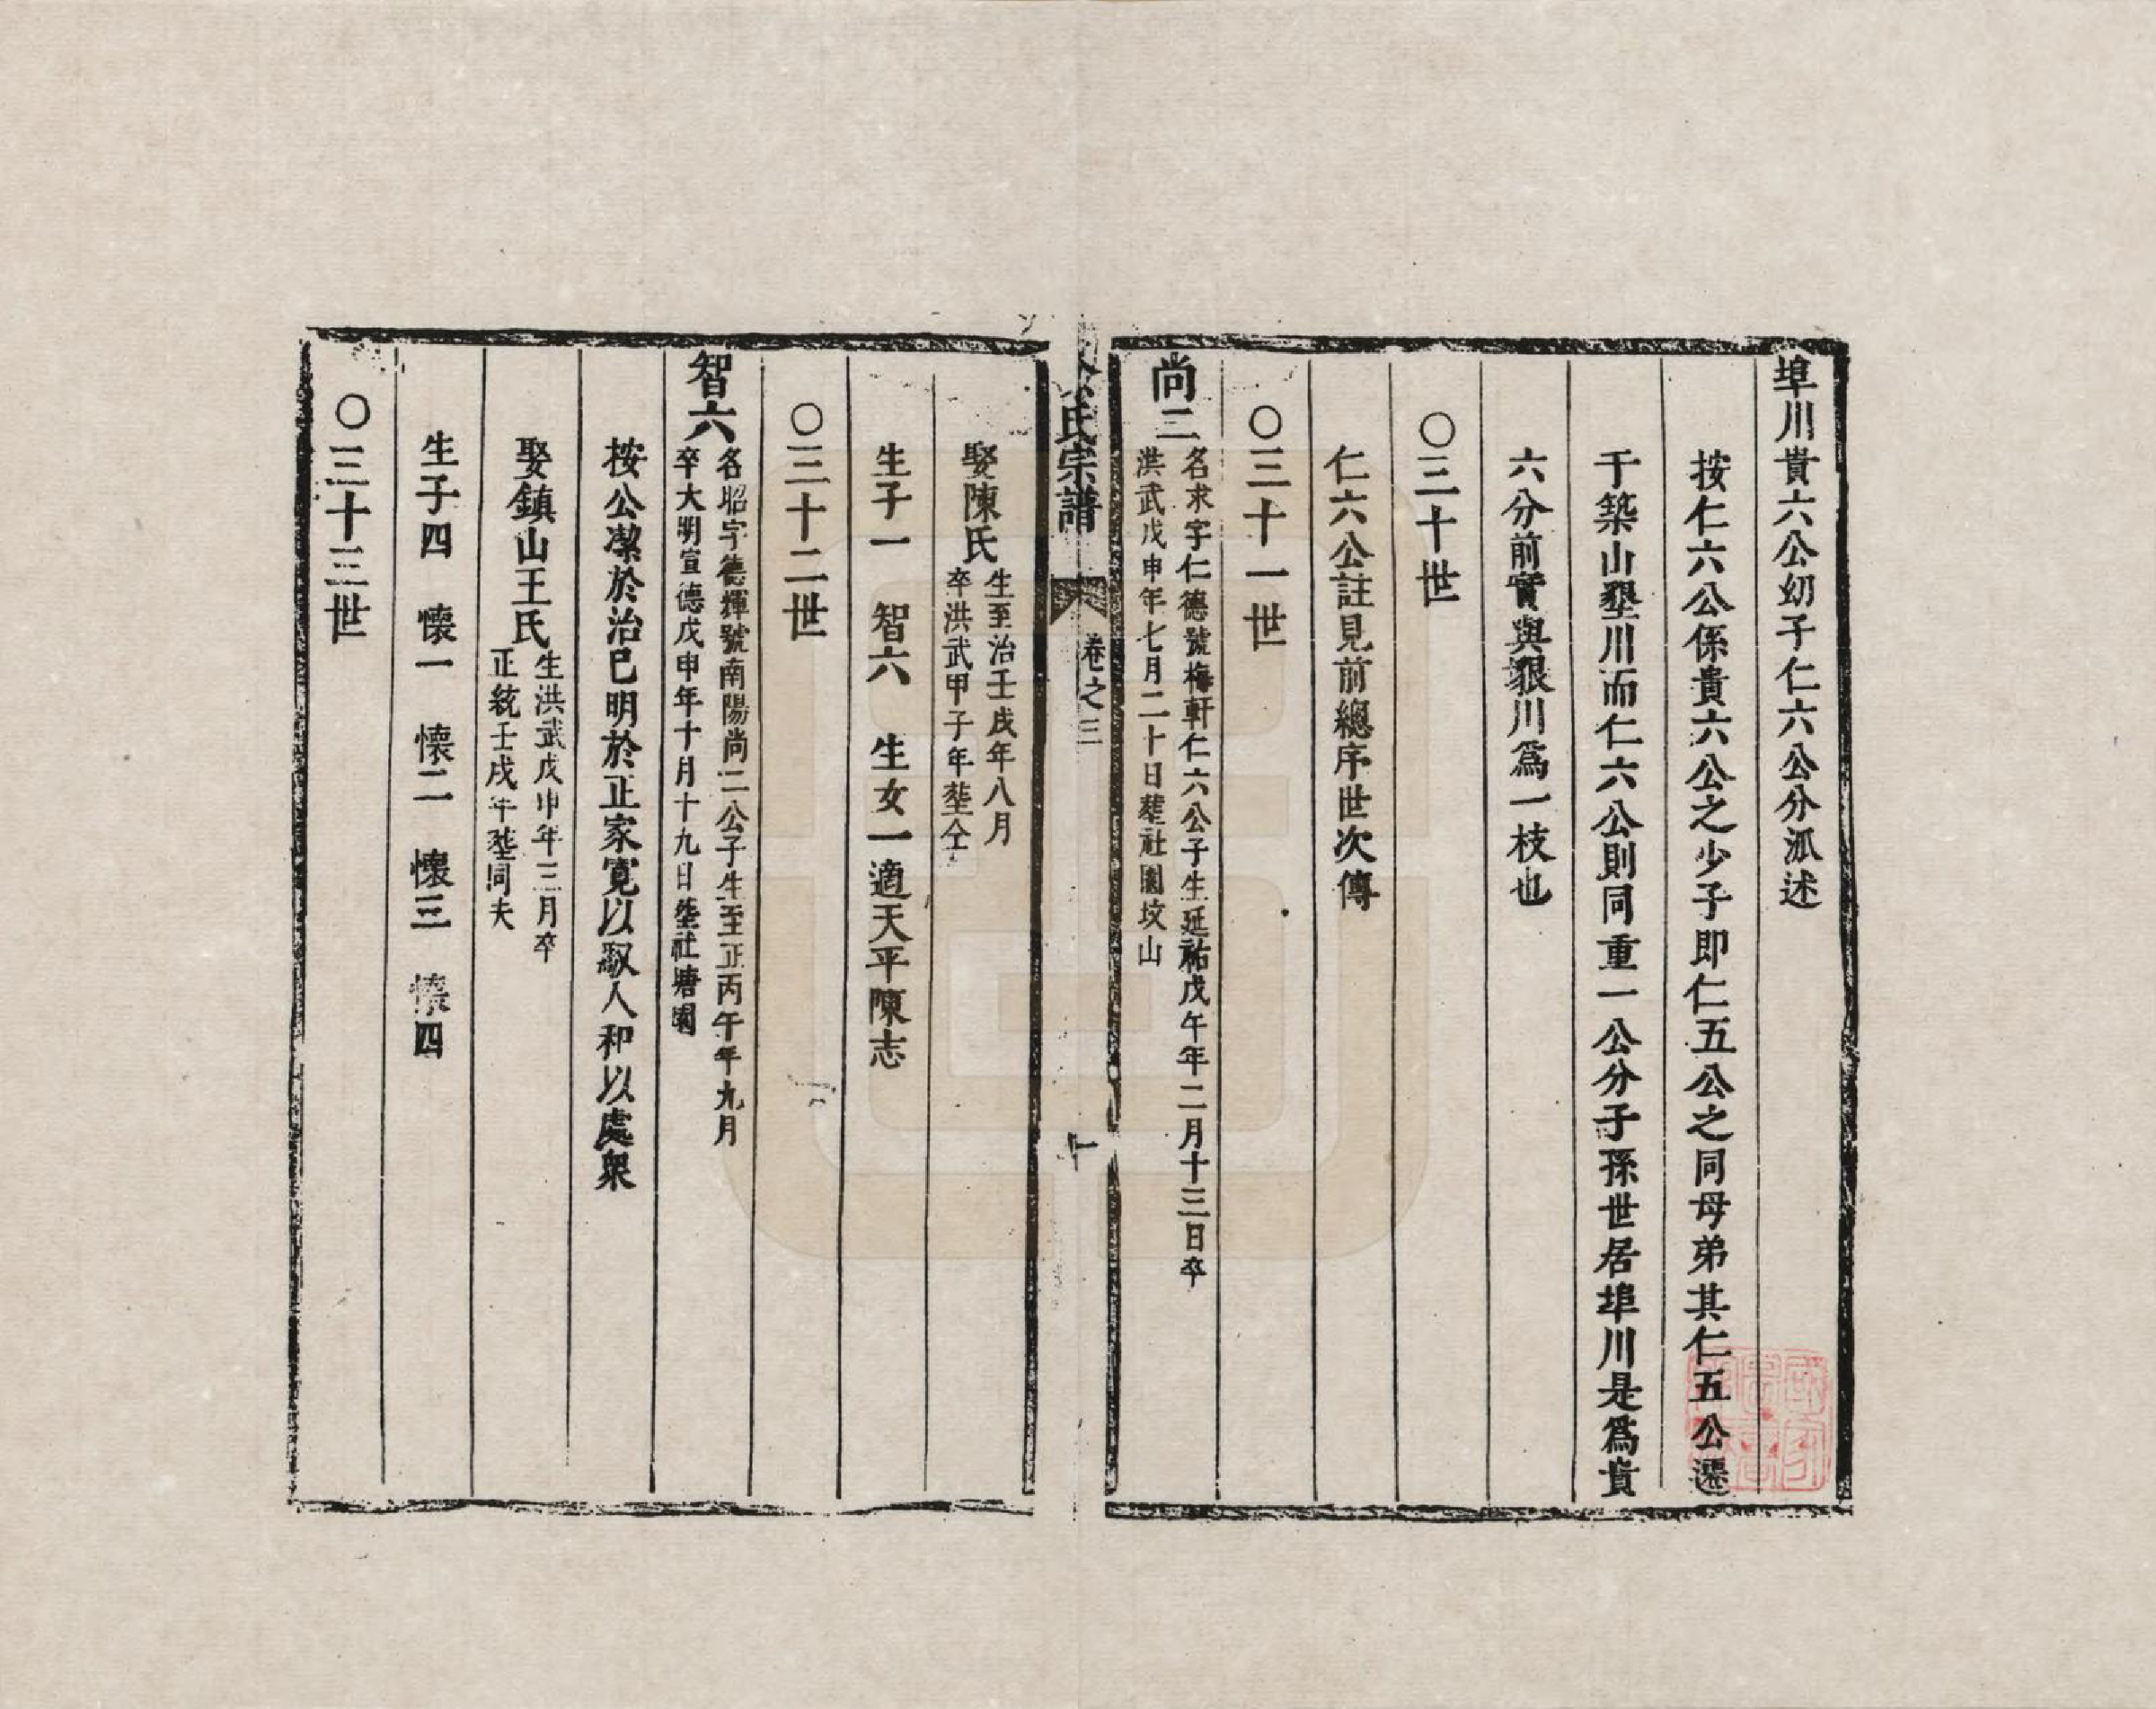 埠川貴六公幼子仁六公分派述
按仁六公係貴六公之少子即仁五公之同母弟其仁五公遷
于築山墾川而仁六公則同重一公分子孫世居埠川是爲貴
六分前實與猳川爲一枝也
〇三十世
仁六公註見前總序世次傳
〇三十一世
尚二
名求字仁德號梅軒仁六公子生延祐戊午年二月十三日卒
洪武戊申年七月二十日塟社園坟山
氏宗譜 卷之三 十
娶陳氏
生至治壬戌年八月
卒洪武甲子年塟仝
生子一 智六 生女一適天平陳志
〇三十二世
智六
名昭字德揮號南陽尚二公子生至正丙午年九月
卒大明宣德戊申年十月十九日塟社塘園
按公潔於治已明於正家寛以馭人和以處衆
娶鎮山王氏
生洪武戊申年三月卒
正統壬戌年塟同夫
生子四 懷一 懷二 懷三 懷四
〇三十三世